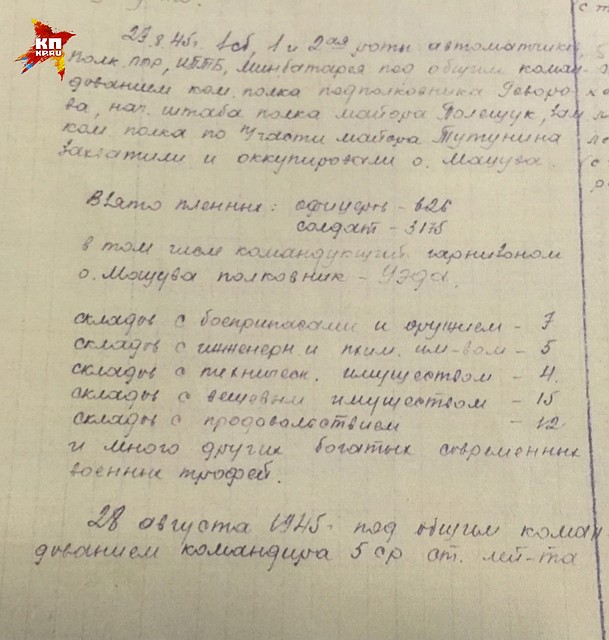 КП
KP.RU
27.8.45г. 1сб, 1 и 2ая роты автоматчиков,
полк. ПТР, ИПТБ, Минбатарея под общим коман-
дованием ком. полка подполковника
ва, нач. штаба полка майора Полещук, зам
ком. полка по майора Тутунина
захватили и оккупировали о. Мацува.
Взято пленные: офицеров - 626
солдат - 3175
в том числе командующий гарнизоном
о. Мацува полковник - Уэда.
складов с боеприпасами и оружием - 7
складов с инженерн. и хим. им-вом - 5
складов с техническ. имуществом - 4.
складов с вещевым имуществом - 15
складов с продовольствием - 12
и много других богатых современных
военных трофей.
28 августа 1945г. под общим коман-
дованием командира 5 ср ст. лей-та